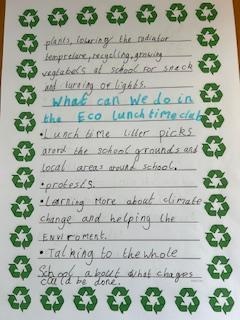 plants, lowering the radiator
tempreture, recycling, growing
vegtabels at school for snack
and turning of lights.
What can we do in
the Eco lunchtime club
•Lunch time litter picks
arord the school grounds and
local areas around school.
•protests.
•Learning More about climate
change and helping the
Enviroment.
•Talking to the whole
School about what changes
could be done.